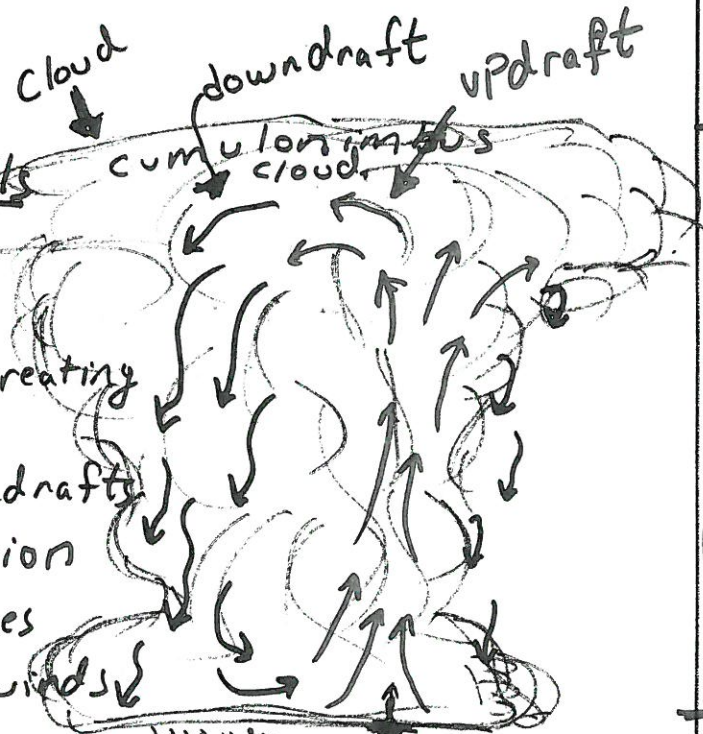 cloud
downdraft
updraft
cumulonimbus
cloud
ts
reating
drafts
ion
es
winds